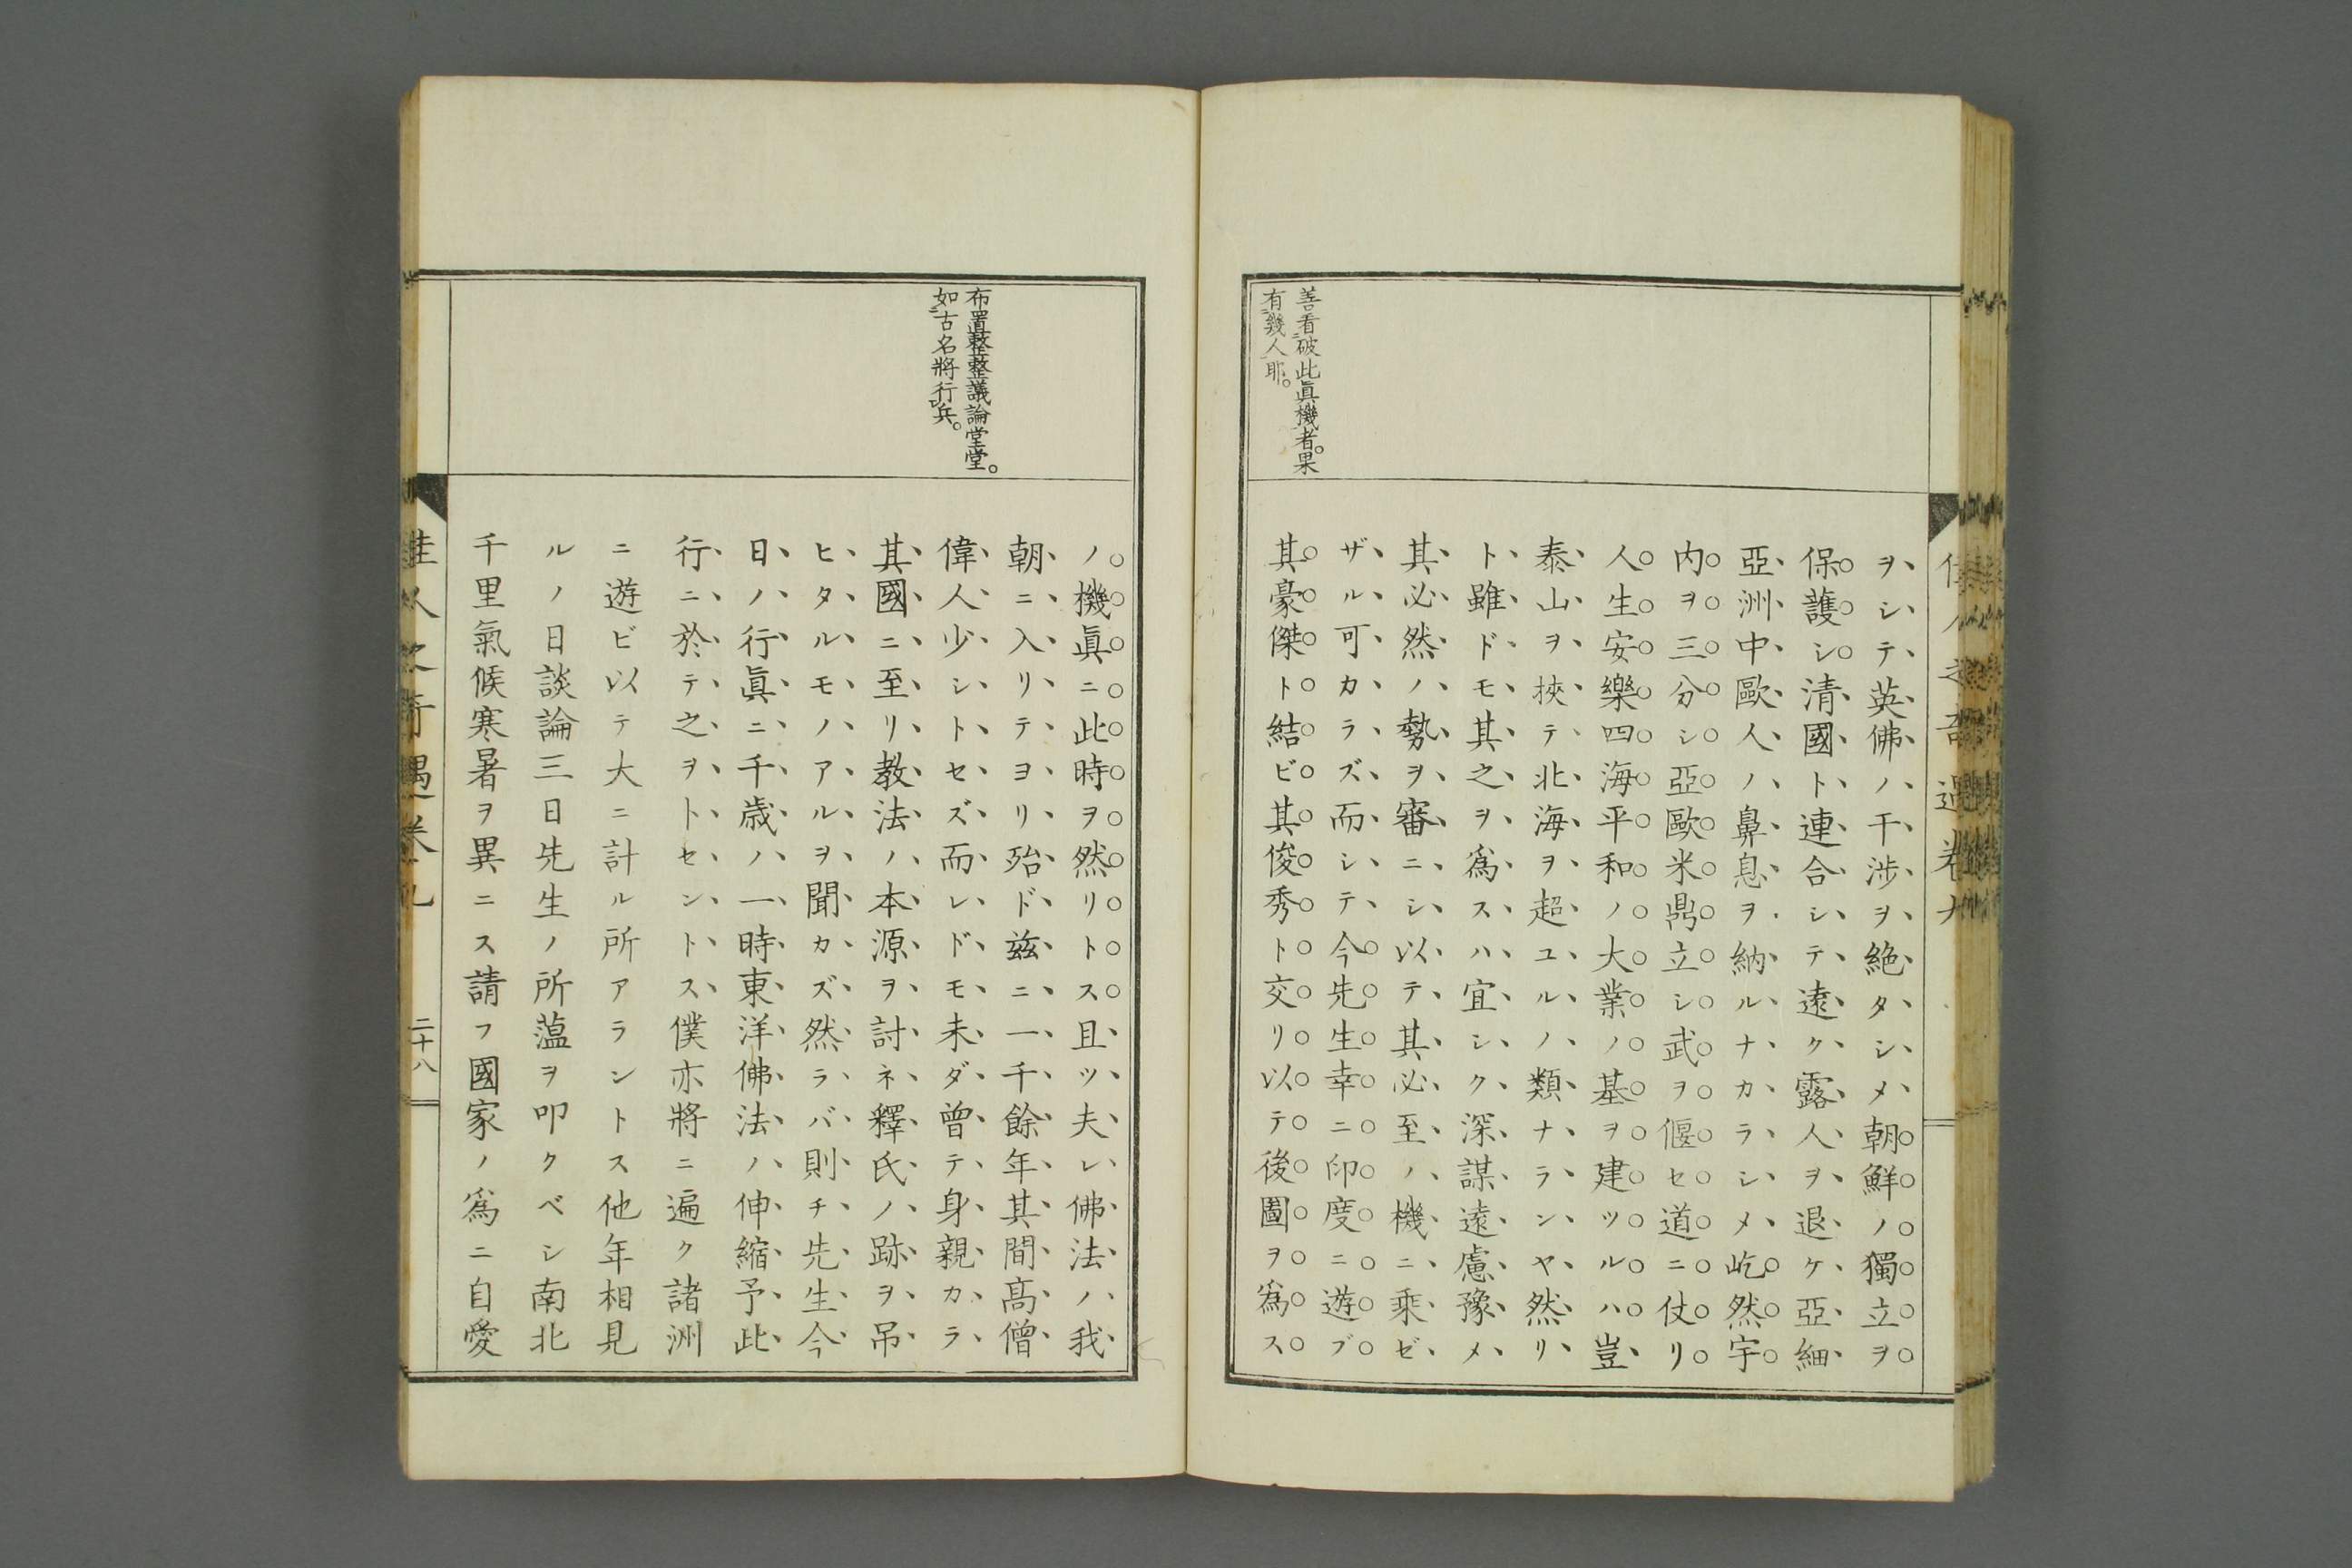 ヲシテ英佛ノ干涉ヲ絶タシメ朝鮮ノ獨立ヲ
保護シ清國ト連合シテ遠ク露人ヲ退ケ亞細
亞洲中歐人ノ鼻息ヲ納ルナカラシメ屹然宇
内ヲ三分シ亞歐米鼎立シ武ヲ偃セ道ニ仗リ
人生安樂四海平和ノ大業ノ基ヲ建ツルハ豈
泰山ヲ挾テ北海ヲ超ユルノ類ナランヤ然リ
ト雖ドモ其之ヲ爲スハ宜シク深謀遠慮豫メ
其必然ノ勢ヲ審ニシ以テ其必至ノ機ニ乘ゼ
ザル可カラズ而シテ今先生幸ニ印度ニ遊ブ
其豪傑ト結ビ其俊秀ト交リ以テ後圖ヲ爲ス
善看破此眞機者。果
有幾人耶。
ノ機眞ニ此時ヲ然リトス且ツ夫レ佛法ノ我
朝ニ入リテヨリ殆ド茲ニ一千餘年其間髙僧
偉人少シトセズ而レドモ未ダ曾テ身親カラ
其國ニ至リ教法ノ本源ヲ討ネ釋氏ノ跡ヲ吊
ヒタルモノアルヲ聞カズ然ラバ則チ先生今
日ノ行眞ニ千歳ノ一時東洋佛法ノ伸縮予此
行ニ於テ之ヲトセントス僕亦將ニ遍ク諸洲
ニ遊ビ以テ大ニ計ル所アラントス他年相見
ルノ日談論三日先生ノ所薀ヲ叩クベシ南北
千里氣候寒暑ヲ異ニス請フ國家ノ爲ニ自愛
布置整整議論堂堂。
如古名將行兵。
佳人之奇遇卷九
二十八